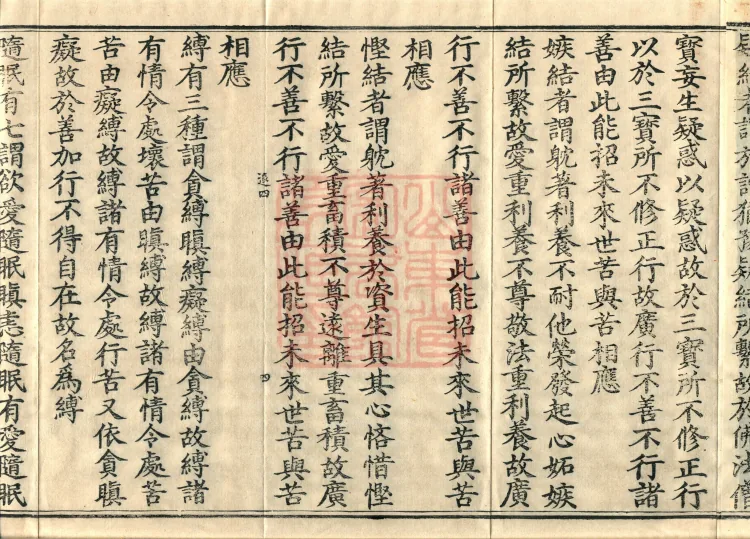 疑結者謂於諦猶豫疑結所繫故於佛法僧
寶妄生疑惑以疑惑故於三寶所不修正行
以於三寶所不修正行故廣行不善不行諸
善由此能招未來世苦與苦相應
嫉結者謂躭著利養不耐他榮發起心妬嫉
結所繫故愛重利養不尊敬法重利養故廣
行不善不行諸善由此能招未來世苦與苦
相應
慳結者謂躭著利養於資生具其心悋惜慳
結所繫故愛重畜積不尊遠離重畜積故廣
行不善不行諸善由此能招未來世苦與苦
四 四
相應
縛有三種謂貪縛瞋縛癡縛由貪縛故縛諸
有情令處壞苦由瞋縛故縛諸有情令處苦
苦由癡縛故縛諸有情令處行苦又依貪瞋
癡故於善加行不得自在故名為縛
隨眠有七謂欲愛隨眠瞋恚隨眠有愛隨眠